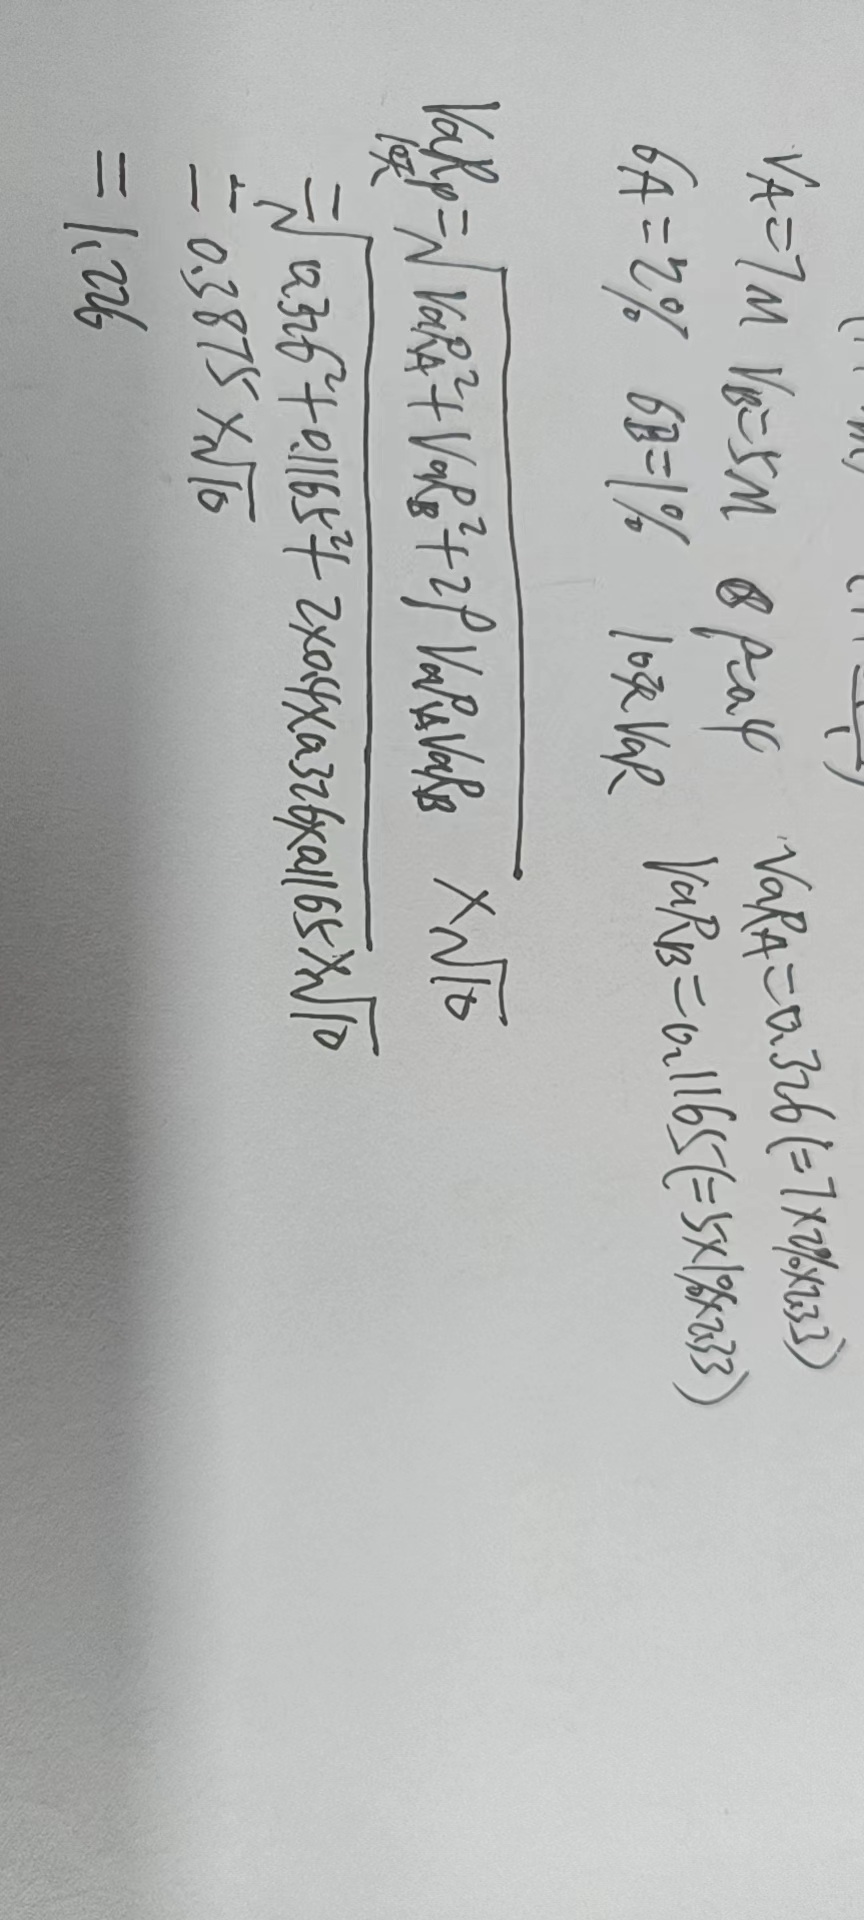 V_A=7M V_B=5M ρ=0.4 VaR_A=0.326(=7×2%×2.33)
σ_A=2% σ_B=1% 10天VaR VaR_B=0.1165(=5×1%×2.33)
VaR_P 10天=√(VaR_A²+VaR_B²+2ρVaR_AVaR_B) ×√10
=√(0.326²+0.1165²+2×0.4×0.326×0.1165)×√10
=0.3875×√10
=1.226